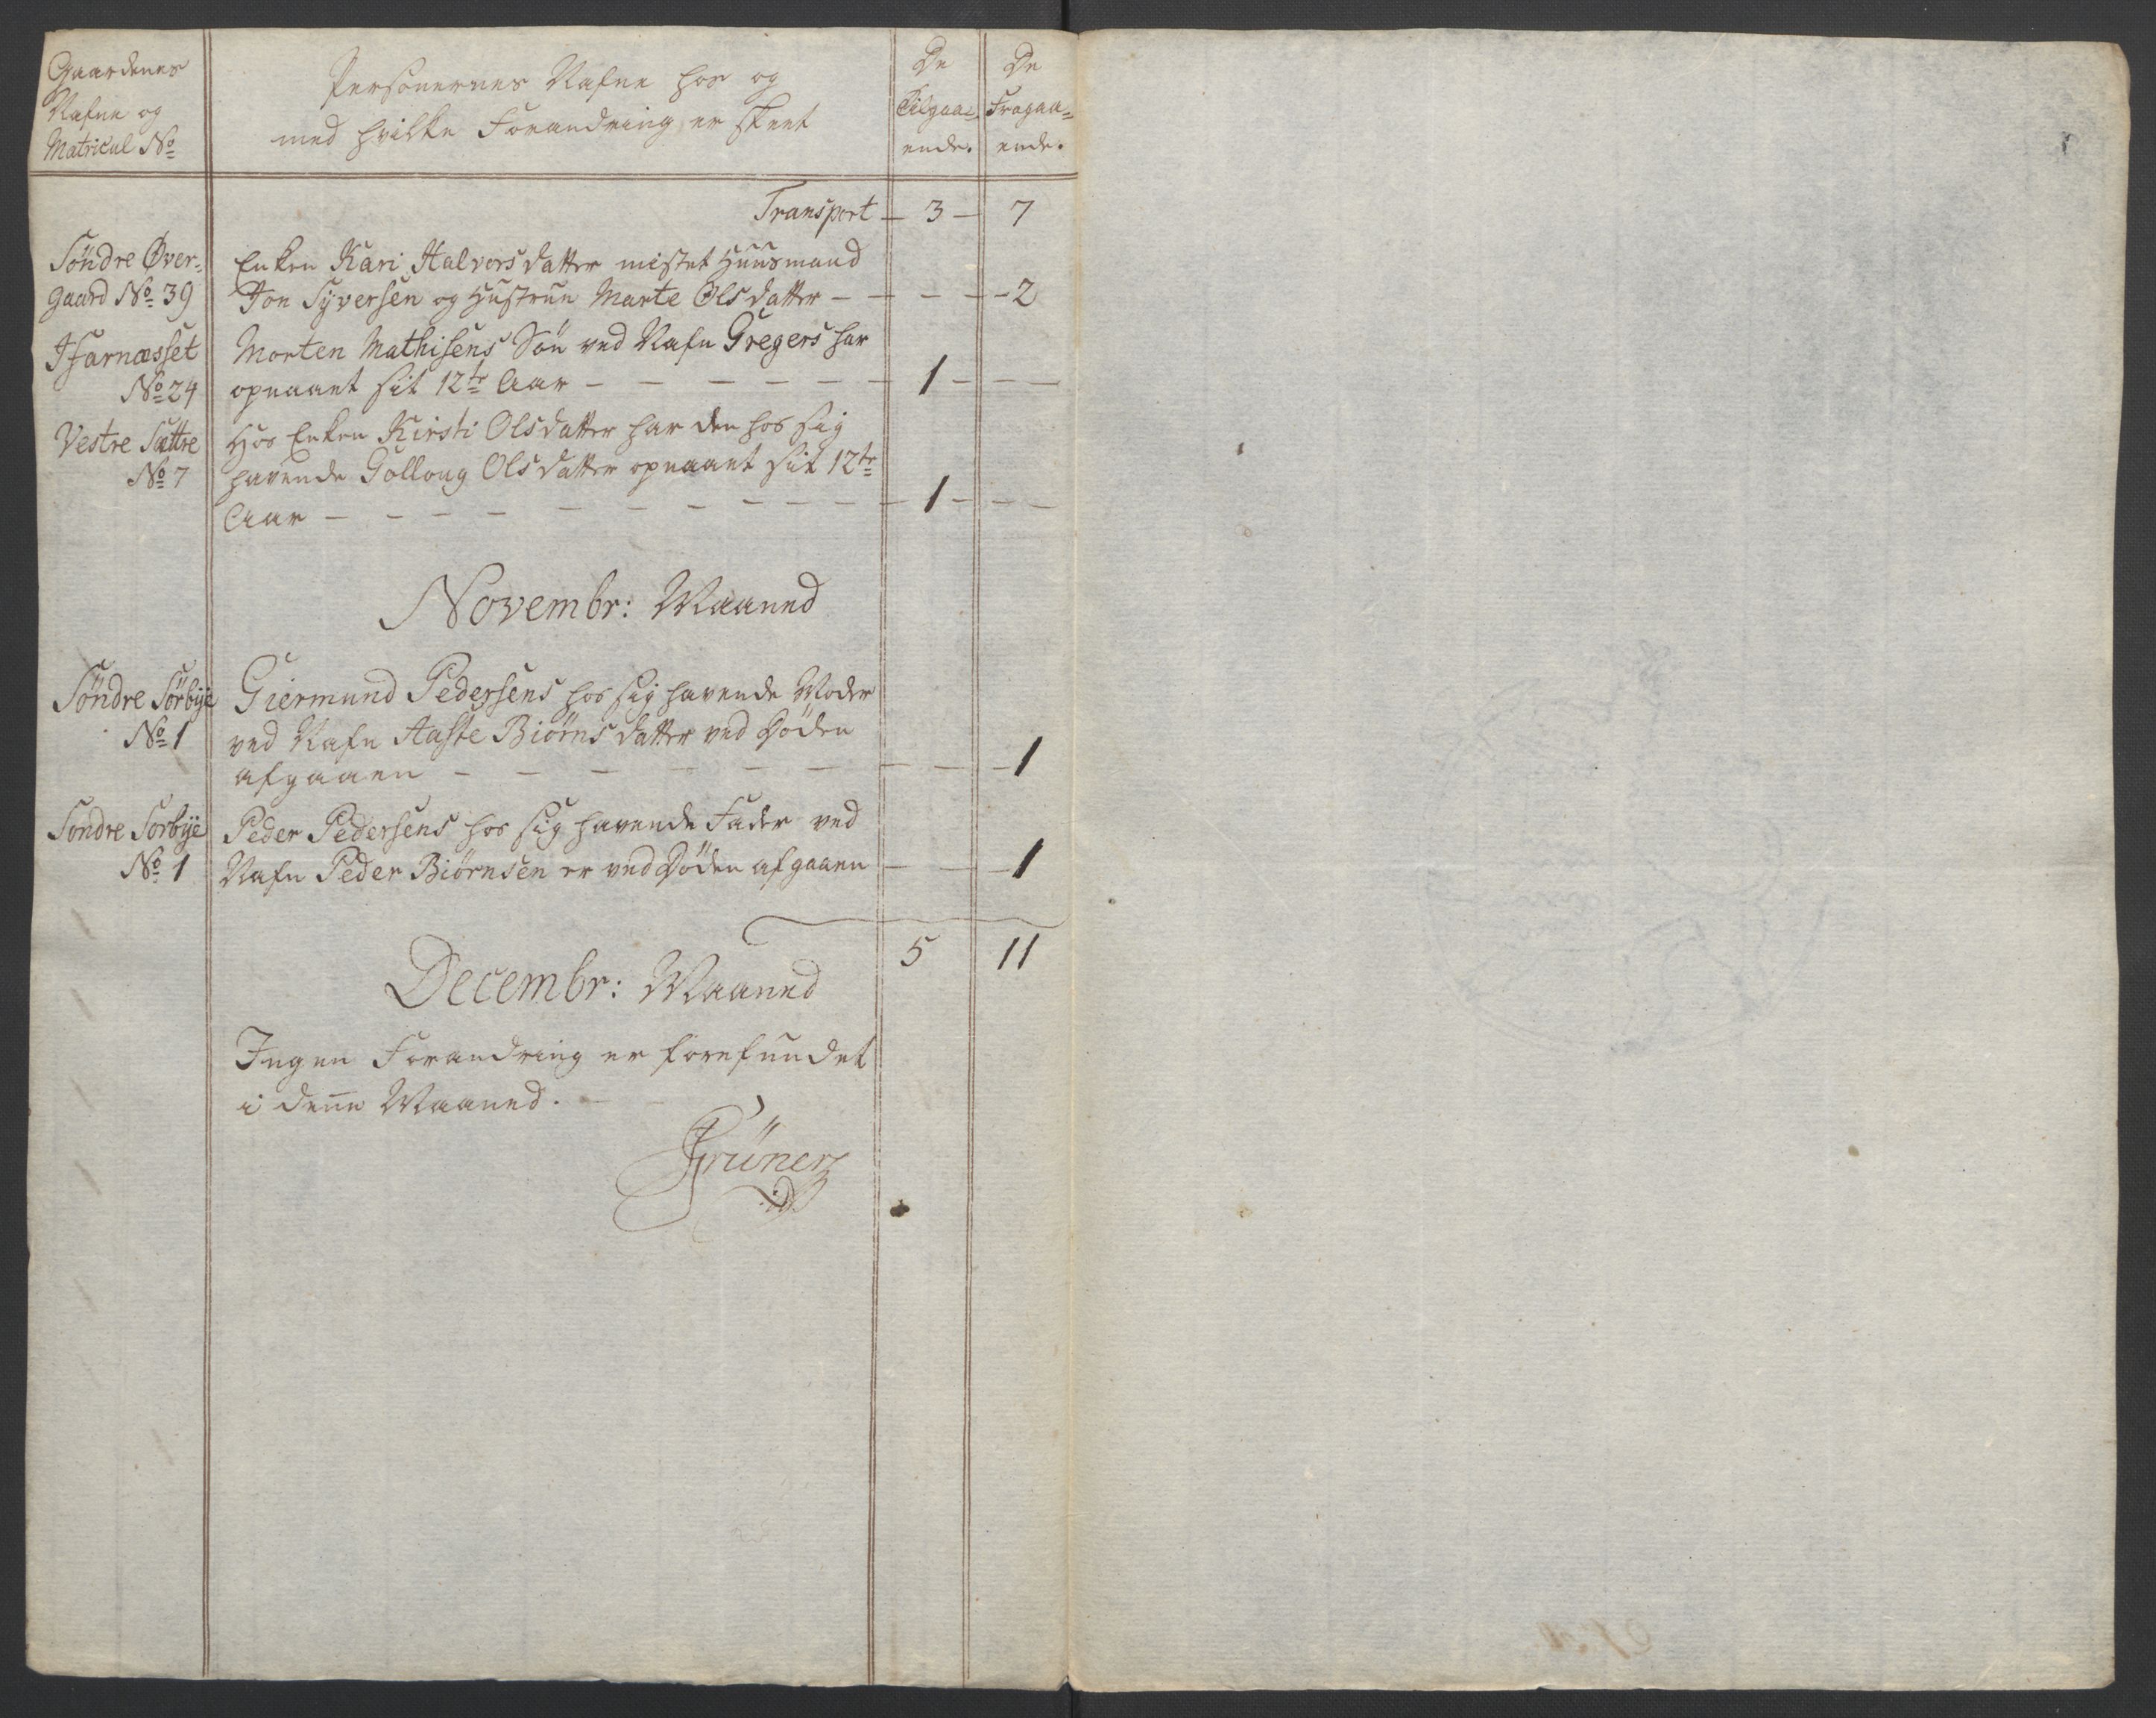 Gaardenes
Nafne og
Matricul No
Personernes Nafne hos og
med hvilke Forandring er skeet
De
Tilgaa=
ende.
De
Fragaa=
ende.
Transport — 3 — 7
Söndre Øver= Enken Kari Halvorsdatter mistet Huusmand
gaard No 39 Jon Syversen og Hustrue Marte Olsdatter — — — — 2
Morten Mathisens Søn ved Nafn Gregers har
No 24 opnaaet sit 12te Aar — — — — — — 1 — — —
Vestre Sættre Hos Enken Kirsti Olsdatter har den hos sig
No 7 havende Golloug Olsdatter opnaaet sit 12te
Aar — — — — — — — — — — 1 — — —
Novembr: Maaned
Söndre Sörbye Giermund Pedersens hos sig havende Moder
No 1 ved Nafn Aaste Biørnsdatter ved Döden
afgaaen — — — — — — — — — 1
Söndre Sorbye Peder Pedersens hos sig havende Fader ved
No 1 Nafn Peder Biørnsen er ved Döden afgaaen — — — 1
5 11
Decembr: Maaned
Ingen Forandring er forefundet
i denne Maaned. —
Grüner